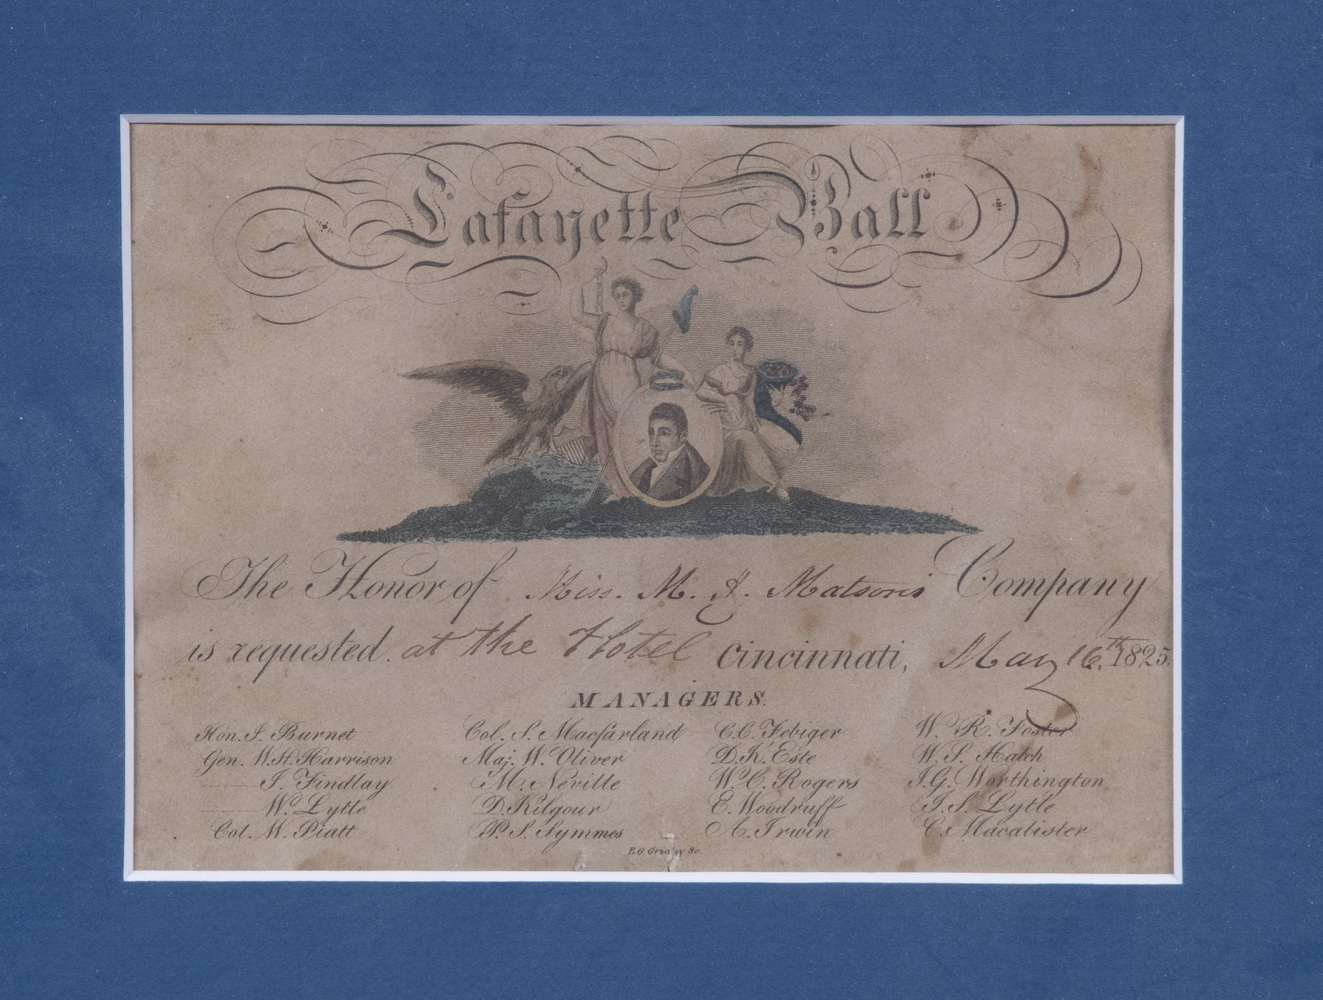 Lafayette Ball
The Honor of Miss. M. A. Matson's Company
is requested at the Hotel Cincinnati, May 16.th 1825.
MANAGERS.
Hon. J. Burnet
Gen. W.H. Harrison
J. Findlay
W. Lytle
Col. M. Piatt
Col. S. Macfarland
Maj. W. Oliver
M. Neville
D. Kilgour
P. S. Symmes
C.C. Febiger
D.K. Este
W.C. Rogers
E. Woodruff
A. Irwin
W. R. Foster
W. S. Hatch
J.G. Worthington
J.S. Lytle
C. Macalister
E.G. Gridley Sc.